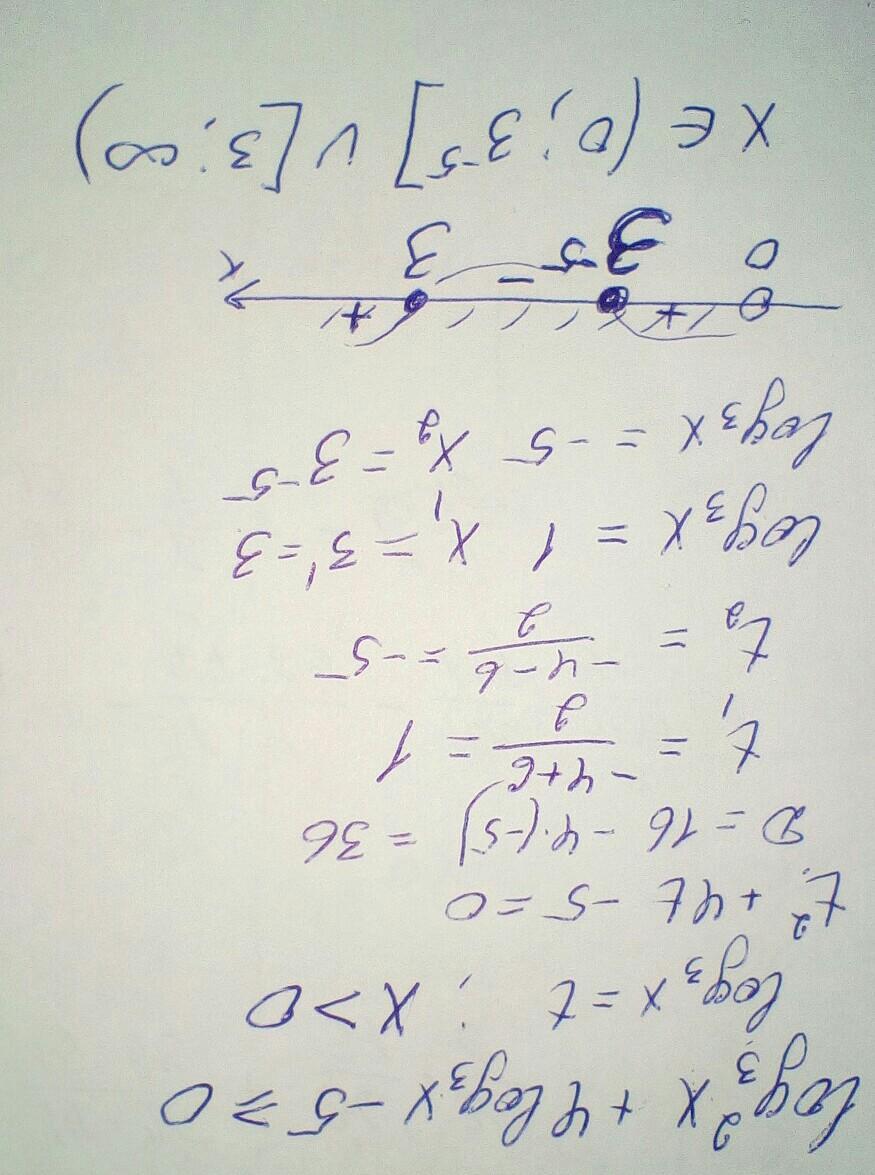 log₃²x + 4log₃x - 5 ≥ 0
log₃x = t ; x > 0
t² + 4t - 5 = 0
D = 16 - 4·(-5) = 36
t₁ = (-4+6)/2 = 1
t₂ = (-4-6)/2 = -5
log₃x = 1 x₁ = 3¹ = 3
log₃x = -5 x₂ = 3⁻⁵
+ - + x
0 3⁻⁵ 3
x ∈ (0; 3⁻⁵] ∪ [3; ∞)